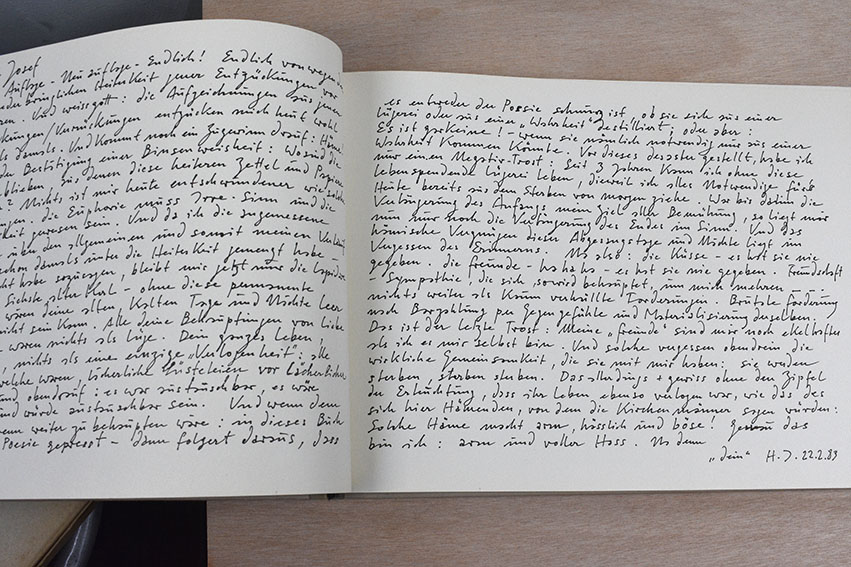 Josef
Auflage - Neuauflage - Endlich! Endlich von wegen
Heiterkeit jener Entzückungen vor
Und weissgott: die Aufzeichnungen aus jenen
/Verzückungen entzücken mich heut wohl
damals. Und kommt noch ein Zugewinn darauf: Häme
Bestätigung einer Binsenweisheit: Wo sind die
blieben aus denen diese heiteren Zettel und Papiere
? Nichts ist mir heute entschwundener wie solche
die Euphorie muss Irre-Sinn und die
gewesen sein. Und da ich die angemessene
über den allgemeinen und somit meinen Verlauf
schon damals unter die Heiterkeit gemengt habe -
habe sozusagen, bleibt mir jetzt nur die
Sichste aller - ohne diese permanente
wären deine alten kalten Tage und Nächte leer
nicht sein kann. Alle deine Behauptungen von Liebe
waren nichts als Lüge. Dein ganzes Leben,
nichts als eine einzige „Verlogenheit": alle
welche waren, lächerliche Einsteleien vor Lächerlichen
und obendrauf: es war austauschbar, es wäre
und würde austauschbar sein. Und wenn dem
weiter zu behaupten wäre: in dieses Buch
Poesie gepresst - dann folgert daraus, dass
es entweder der Poesie schnurz ist, ob sie sich aus einer
Lügerei oder aus einer „Wahrheit" destilliert; oder aber:
Es ist gar keine! - wenn sie nämlich notwendig nur aus einer
Wahrheit kommen könnte. Vor dieses desaster gestellt, habe ich
nur einen Negativ-Trost: Seit 3 Jahren kann ich ohne diese
lebenspendende Lügerei leben, dieweil ich alles Notwendige fürs
Heute bereits aus dem Sterben von morgen ziehe. War bis dahin die
Verlängerung des Anfangs mein Ziel aller Bemühung, so liegt mir
nun nur noch die Verlängerung des Endes im Sinn. Und das
hämische Vergnügen dieser Abgesangstage und Nächte liegt im
Vergessen des Erinnerns. Na also: die Küsse - es hat sie nie
gegeben. die freunde - ha ha ha - es hat sie nie gegeben. Freundschaft
- Sympathie, die sich, so wird behauptet, um mich mehren -
nichts weiter als kaum verhüllte Forderungen. Brutale Forderung
nach Barzahlung per Gegengefühle und Materialisierung derselben.
Das ist der letzte Trost: Meine „freunde" sind mir noch ekelhafter
als ich es mir selbst bin. Und solche vergessen obendrein die
wirkliche Gemeinsamkeit, die sie mit mir haben: sie werden
sterben, sterben sterben. Das allerdings + gewiss ohne den Zipfel
der Erleuchtung, dass ihr Leben ebenso verlogen war, wie das des
sich hier Hämenden, von dem die Kirchenmänner sagen würden:
Solche Häme macht arm, hässlich und böse! genau das
bin ich: arm und voller Hass. Na denn
„dein" H.J. 22.2.89